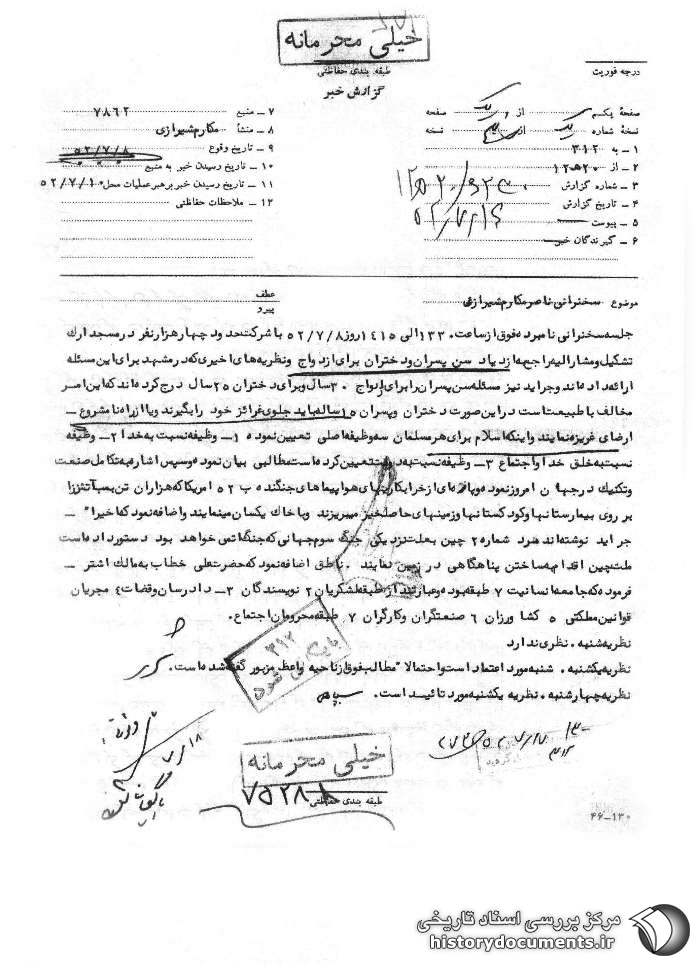 خیلی محرمانه
طبقه بندی حفاظتی
گزارش خبر
درجه فوریت
صفحهٔ یکم از یک صفحه
نسخهٔ شماره یک از نسخه
۱ ـ به ۳۱۲
۲ ـ از ۱۲ه۲۰
۳ ـ شماره گزارش
۴ ـ تاریخ گزارش
۵ ـ پیوست
۶ ـ گیرندگان خبر
۷ ـ منبع ۷۸۶۲
۸ ـ منشأ مکارم شیرازی
۹ ـ تاریخ وقوع ۵۲/۷/۸
۱۰ ـ تاریخ رسیدن خبر به منبع
۱۱ ـ تاریخ رسیدن خبر برهبر عملیات محل ۵۲/۷/۱۰
۱۲ ـ ملاحظات حفاظتی
موضوع سخنرانی ناصر مکارم شیرازی
عطف
پیرو
جلسه سخنرانی نامبرده فوق از ساعت ۱۳۳۰ الی ۱۴۱۵ روز ۵۲/۷/۸ با شرکت حدود چهار هزار نفر در مسجد ارک
تشکیل و مشارالیه راجع به ازدیاد سن پسران و دختران برای ازدواج و نظریه های اخیری که در مشهد برای این مسئله
ارائه داده اند و جراید نیز مسئله سن پسران را برای ازدواج ۳۰ سال و برای دختران ۲۵ سال درج کرده اند که این امر
مخالف با طبیعت است در این صورت دختران و پسران ۱۵ ساله باید جلوی غرائز خود را بگیرند و یا از راه نامشروع ـ
ارضای غریزه نمایند و اینکه اسلام برای هر مسلمان سه وظیفه اصلی تعیین نموده ۱ـ وظیفه نسبت به خدا ۲ـ وظیفه
نسبت به خلق خدا و اجتماع ۳ـ وظیفه نسبت به تعیین کرده است مطالبی بیان نموده و سپس اشاره به تکامل صنعت
و تکنیک در جهان امروز نموده و از خرابکاریهای هواپیماهای جنگنده ب ۵۲ امریکا که هزاران تن بمب آتش زا
بر روی بیمارستانها و کودکستانها و زمینهای حاصلخیز میریزند و با خاک یکسان مینمایند و اضافه نمود که اخیرا" ـ
جراید نوشته اند مرد شماره ۲ چین بعلت نزدیکی جنگ سوم جهانی که جنگ اتمی خواهد بود دستور داده است
ملت چین اقدام به ساختن پناهگاهی در زمین نمایند . ناطق اضافه نمود که حضرت علی خطاب به مالک اشتر ـ
فرموده که جامعه انسانیت ۷ طبقه بوده و عبارتند از طبقه لشکریان ۲ نویسندگان ۳ ـ دادرسان و قضات ۴ مجریان
قوانین مملکتی ۵ کشاورزان ۶ صنعتگران و کارگران ۷ طبقه محرومان اجتماع .
نظریه شنبه . نظری ندارد
نظریه یکشنبه . شنبه مورد اعتماد است و احتمالا" مطالب فوق از ناحیه واعظ مزبور گفته شده است .
نظریه چهارشنبه . نظریه یکشنبه مورد تائید است . سپاه
۳۱۲
خیلی محرمانه
طبقه بندی حفاظتی
۷۵۲۸۸
۴۶-۱۳۰
مرکز بررسی اسناد تاریخی
historydocuments.ir